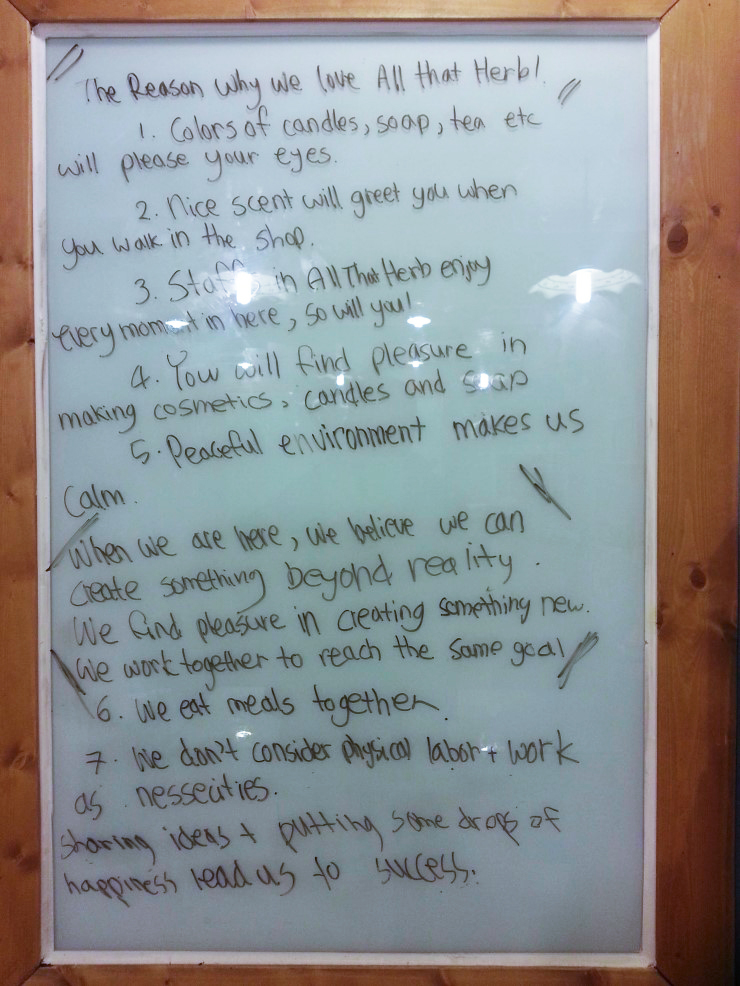 The Reason why we love All that Herb!
1. Colors of candles, soap, tea etc
will please your eyes.
2. Nice scent will greet you when
you walk in the shop.
3. Staffs in All That Herb enjoy
every moment in here, so will you!
4. You will find pleasure in
making cosmetics, candles and soap
5. Peaceful environment makes us
Calm.
When we are here, we believe we can
create something beyond reality.
We find pleasure in creating something new.
We work together to reach the same goal
6. We eat meals together.
7. We don't consider physical labor + work
as nessecities.
sharing ideas + putting some drops of
happiness lead us to success.